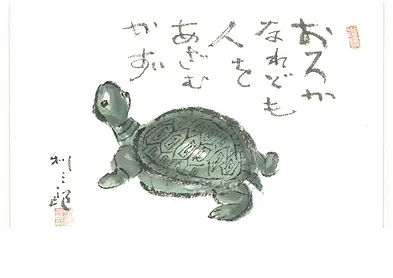 おろか
なれども
人を
あざむ
かず
利三郎